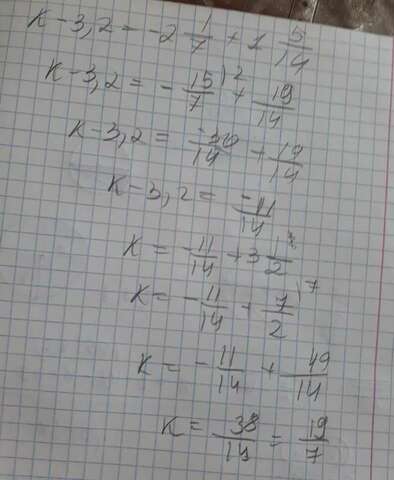 K-3,2=-2 1/7+1 5/14
K-3,2=-15/7 \2+19/14
K-3,2=-30/14+19/14
K-3,2=-11/14
K=-11/14+3 1/2
K=-11/14+7/2 \7
K=-11/14+49/14
K=38/14=19/7